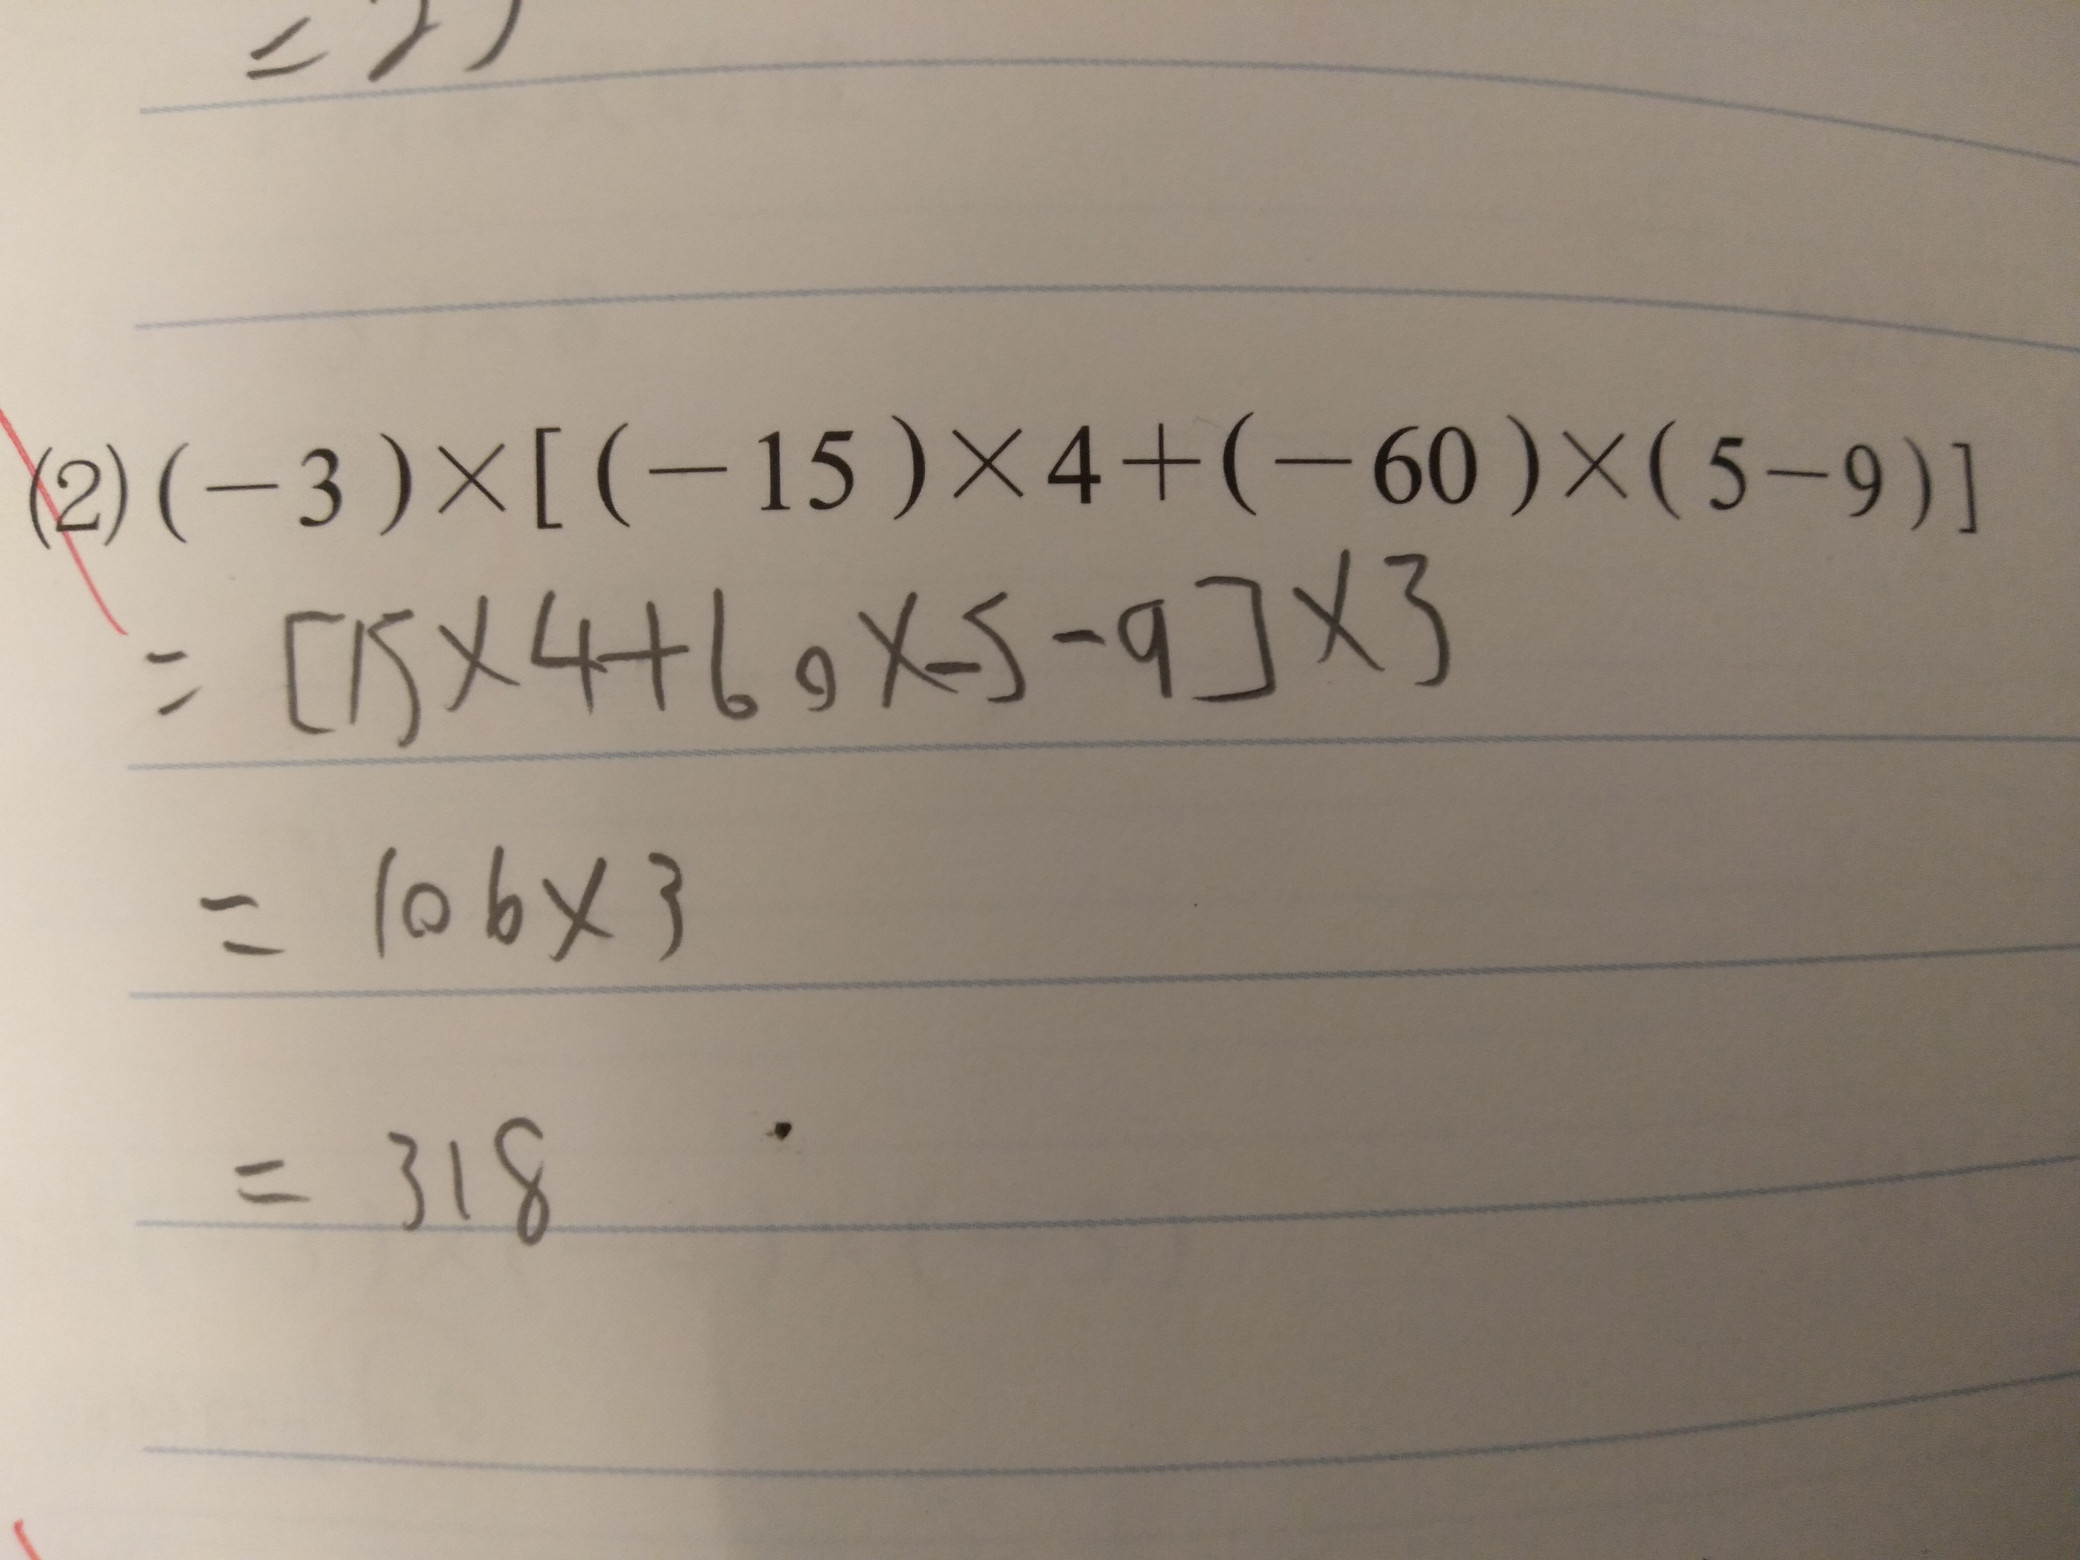 (2)(-3)×[(-15)×4+(-60)×(5-9)]
= [15×4+60×-5-9]×3
= 106×3
= 318